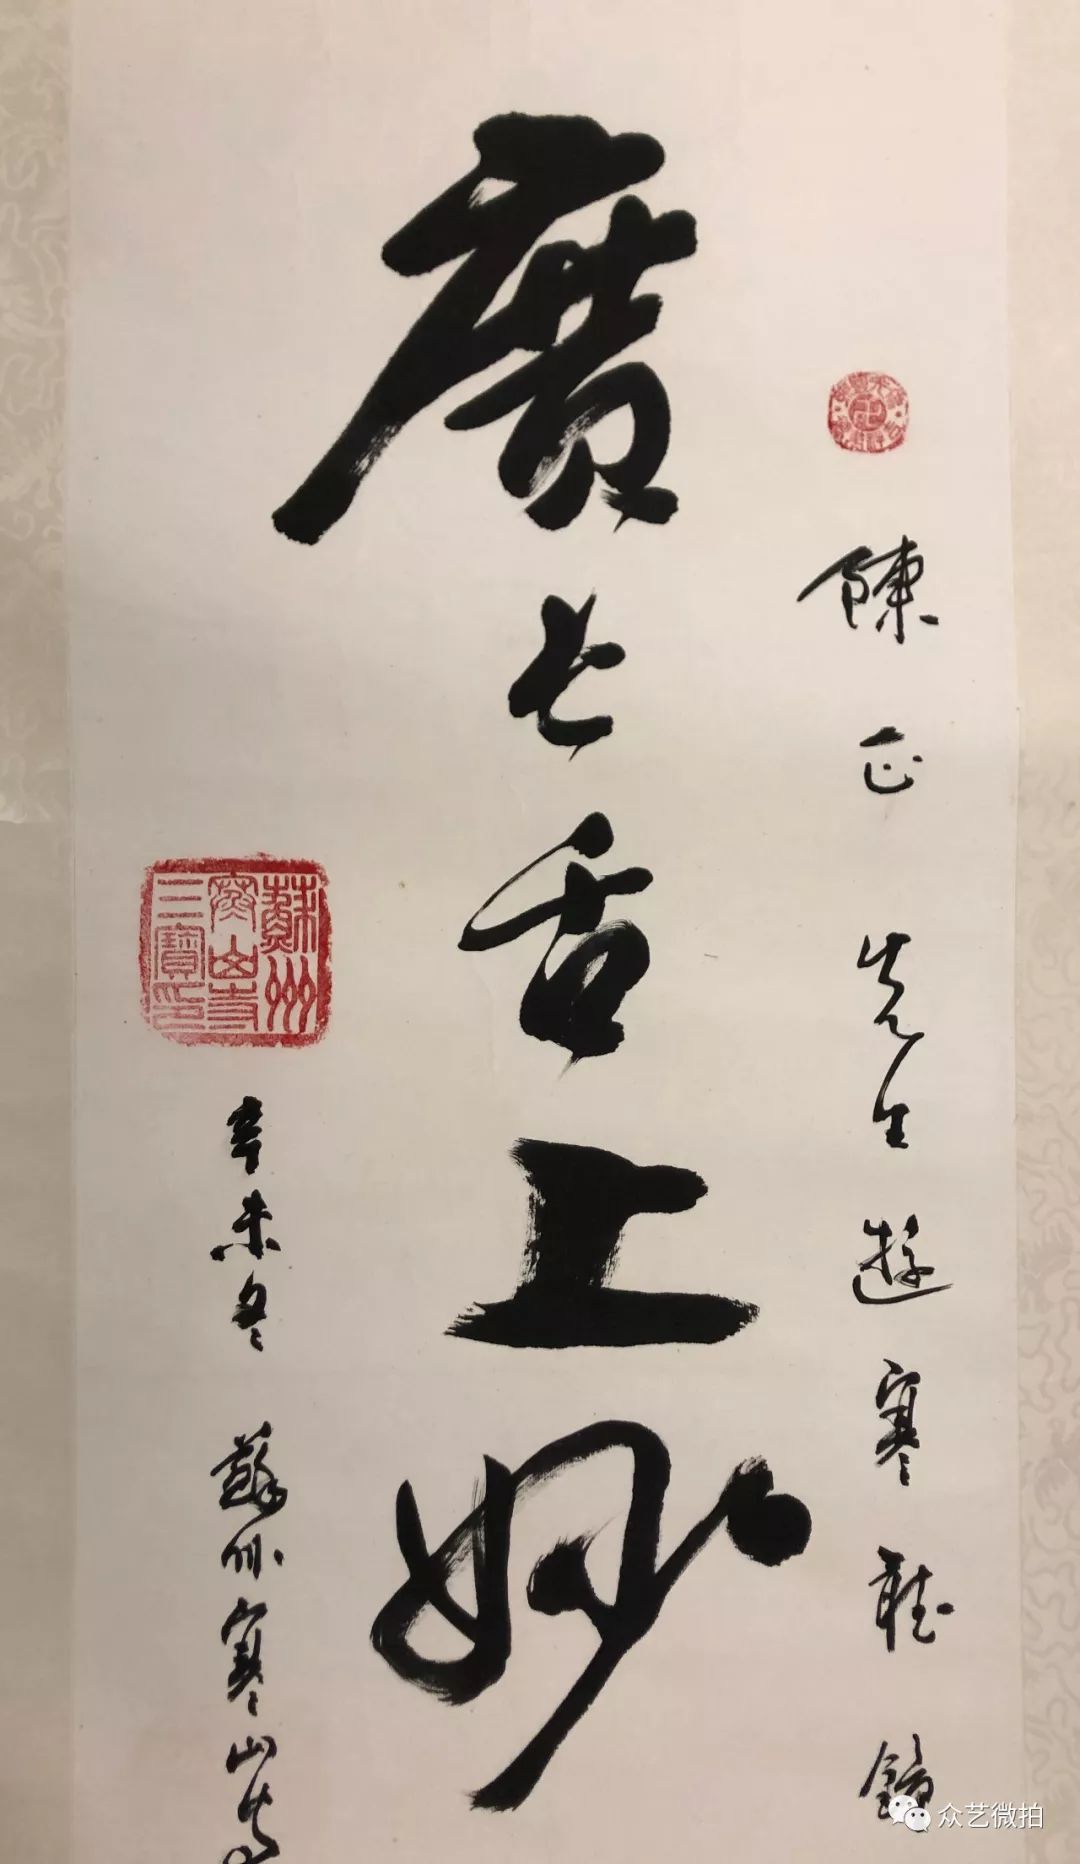 陳正先生遊寒聽鐘
廣長舌上妙
蘇州
寒山寺
三寶印
辛未冬 蘇州寒山寺
众艺微拍